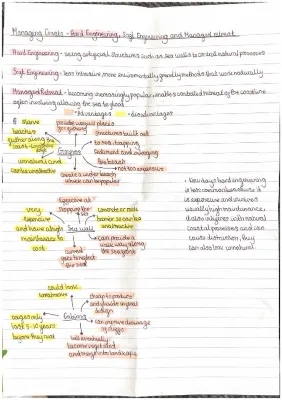 Managing Coasts - Hard Engineering, Soft Engineering and Managed retreat
Hard Engineering - using artificial structures such as sea walls to control natural processes
Soft Engineering - less intrusive more environmentally friendly methods that work naturally
Managed Retreat - becoming increasingly popular, enables controlled retreat of the coastline
often involving allowing the sea to flood
= Advantages
= disadvantages
starve
beaches
further along the
coast
unnatural and
can be unattractive
provide useful places
Groynes
create a wider beach
which can be popular
structures built out
to sea, trapping
sediment and enlarging
the beach
not too expensive
effective at
stopping the sea
very
expensive
and have a high
maintenance
cost
Sea wall
concrete or rock
barrier so can be
unattractive
can provide a
walkway along
the sea front
• Nowadays hard engineering
is less common because it
is expensive and involves
usually high maintenance,
it also interferes with natural
coastal processes and can
cause destruction, they
can also look unnatural
could look
unattractive
cages only
last 5-10 years
before they rust
Gabions
cheap to produce
and flexible in final
design
can improve drainage
of cliffs
will eventually
become vegetated
and merge into landscape